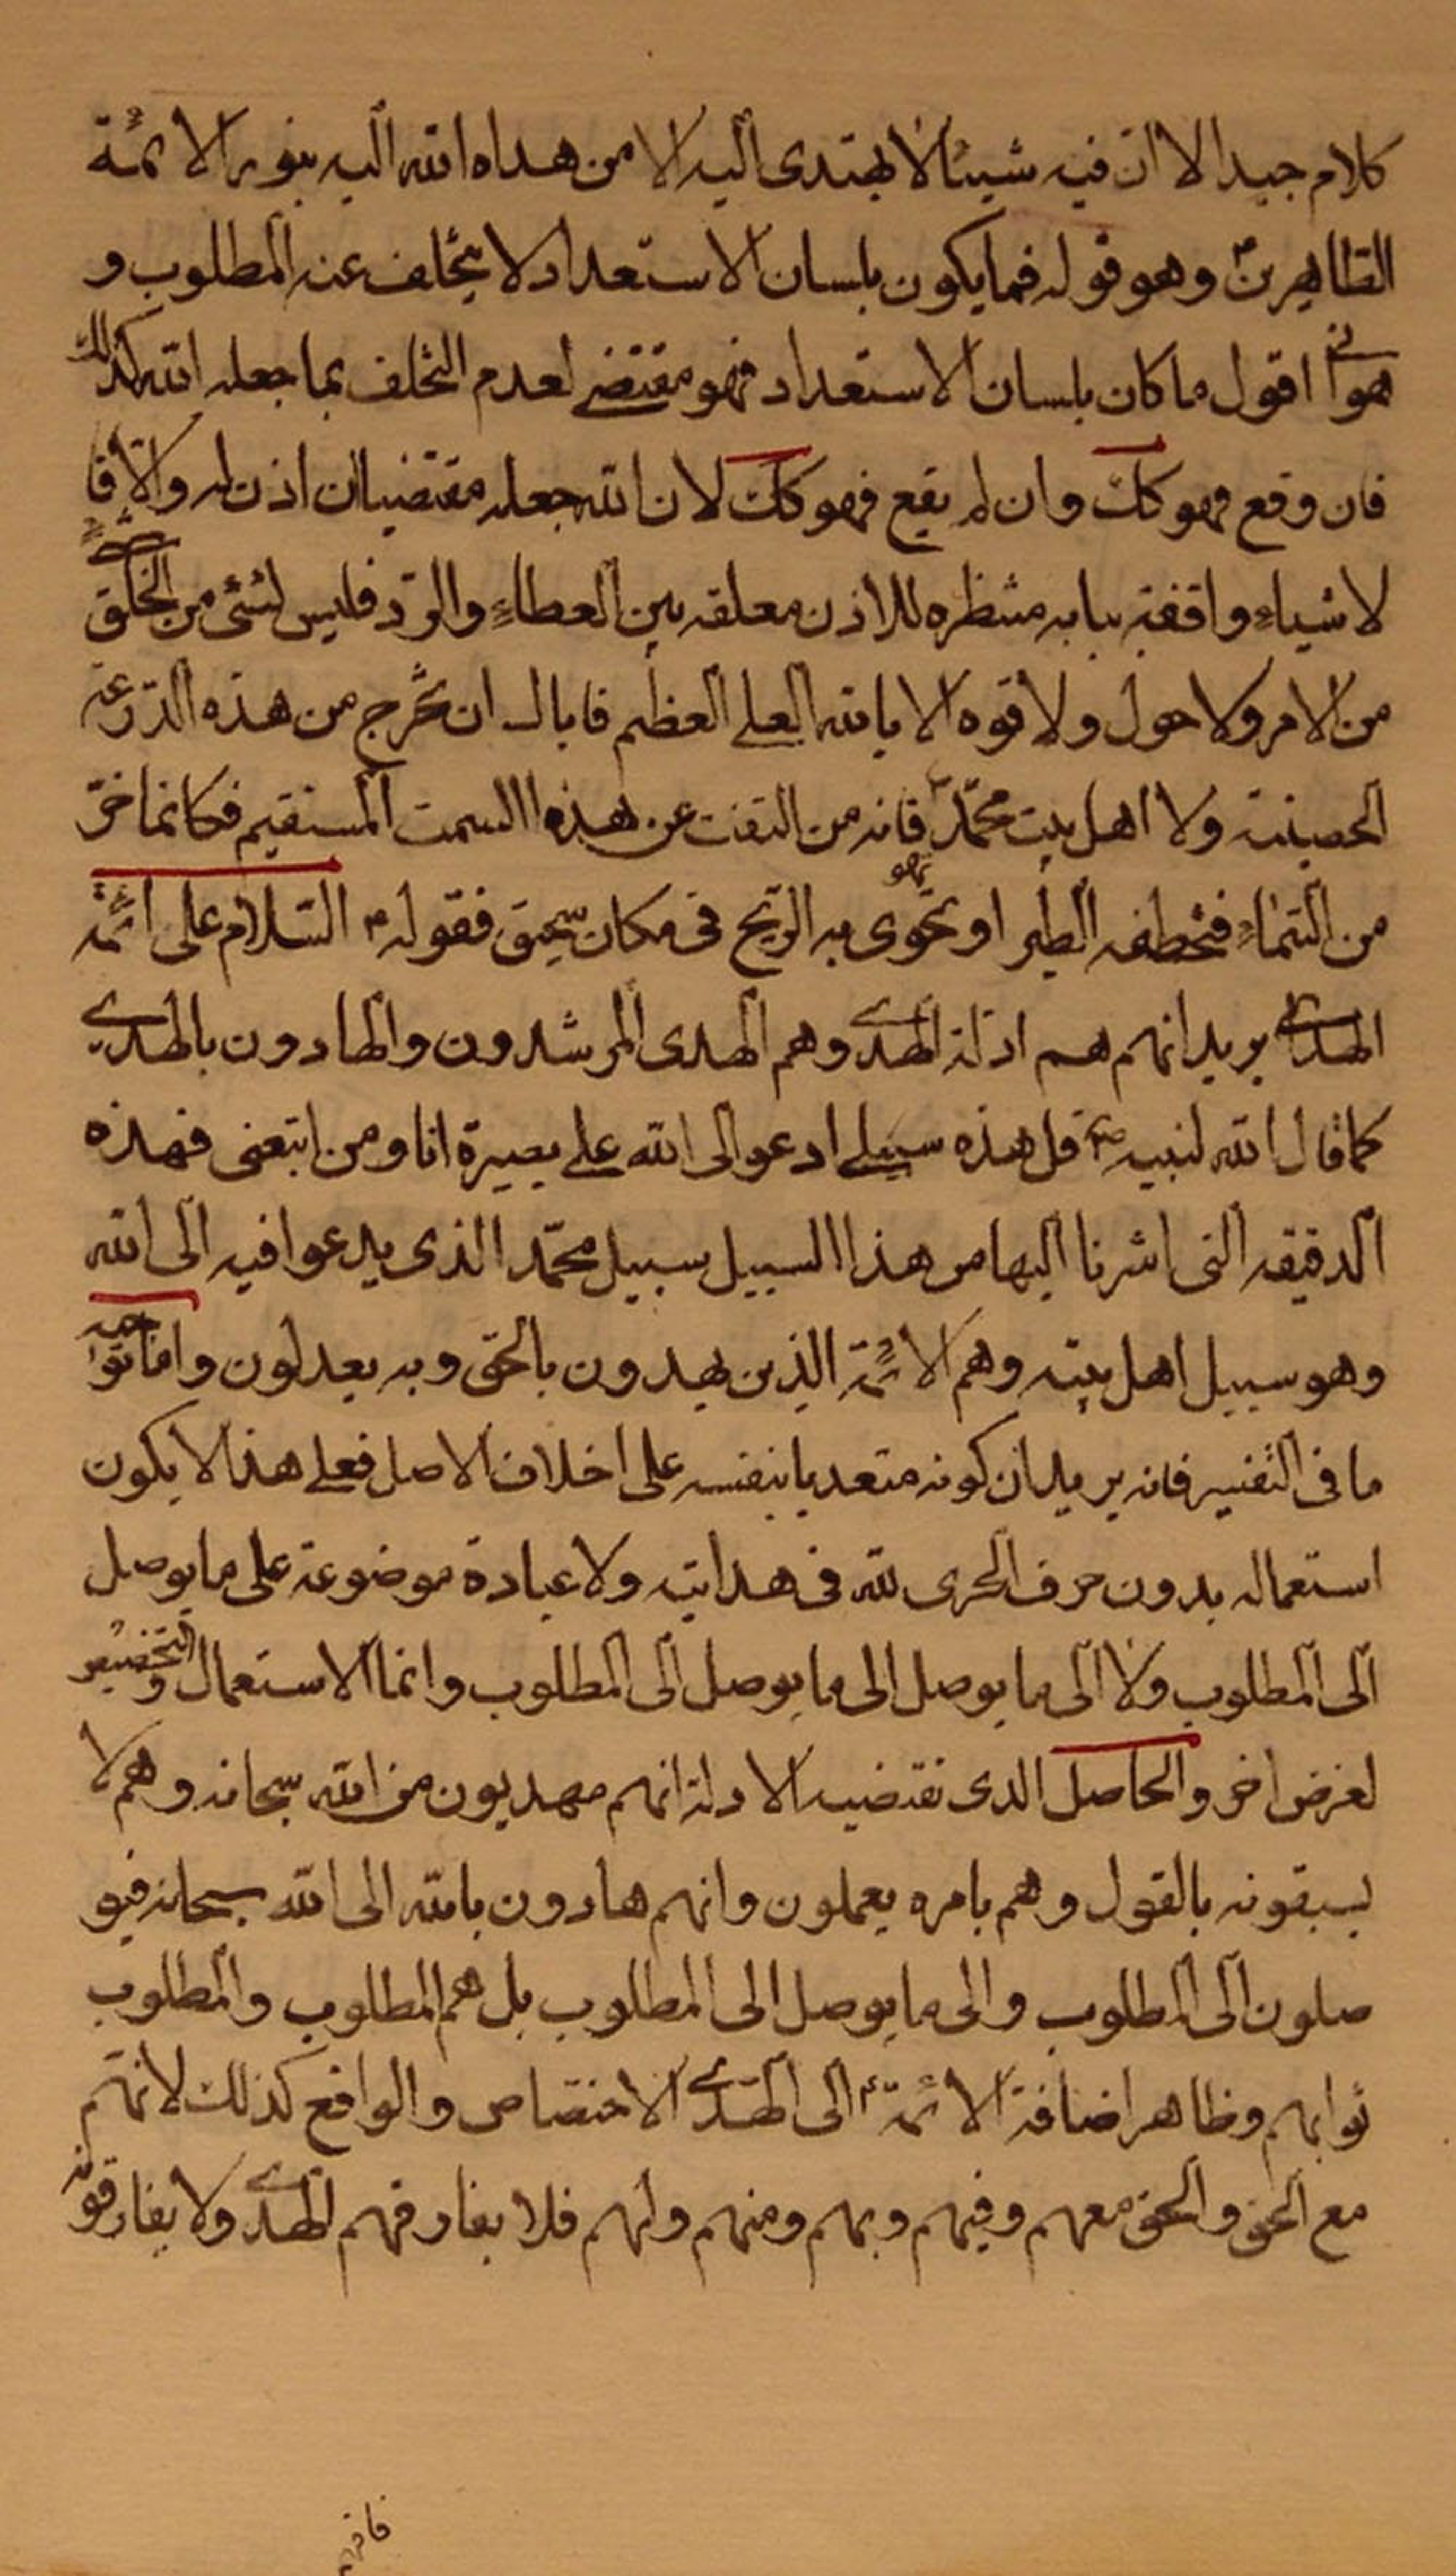 كلام جيد الا ان فيه شيئا لا يهتدى اليه الا من هداه الله اليه بنور الائمة
الطاهرين ع وهو قوله فما يكون بلسان الاستعداد لا يتخلف عنه المطلوب و
هوانى اقول ما كان بلسان الاستعداد فهو مقتضى لعدم التخلف بما جعله الله كذلك
فان وقع فهو كك وان لم يقع فهو كك لان الله جعله مقتضيا ان اذن له والا فا
لاشياء واقفة ببابه منتظره للاذن معلقه بين العطاء والرد فليس لشئ من الخلق شئ
من الامر ولا حول ولا قوه الا بالله العلى العظيم فاياك ان تخرج من هذه الدرعة
الحصينة ولا اهل بيت محمد فانه من التفت عن هذه السمت المستقيم فكانما خرّ
من السماء فتخطفه الطير او تحوى تهو به الريح فى مكان سحيق فقوله ع السلام على ائمة
الهدى يريد انهم هم ادلة الهدى وهم الهدى المرشدون والهادون بالهدى
كما قال الله لنبيه ص قل هذه سبيلى ادعو الى الله على بصيرة انا ومن اتبعنى فهذه
الدقيقه التى اشرنا اليها من هذا السبيل سبيل محمد الذى يدعوا فيه الى الله
وهو سبيل اهل بيته وهم الائمة الذين يهدون بالحق وبه يعدلون واما توجيه
ما فى التفسير فانه يريد ان كونه متعديا بنفسه على اخلاف الاصل فعلى هذا لا يكون
استعماله بدون حرف الجرى لله فى هدايته ولا عبادة موضوعة على ما يوصل
الى المطلوب ولا الى ما يوصل الى ما يوصل الى المطلوب وانما الاستعمال والتخصيص
لغرض اخر والحاصل الذى تقتضيه الادلة انهم مهديون من الله سبحانه وهم لا
يسبقونه بالقول وهم بامره يعملون وانهم هادون بالله الى الله سبحانه فيو
صلون الى المطلوب والى ما يوصل الى المطلوب بل هم المطلوب والمطلوب
ثوابهم وظاهر اضافة الائمة ع الى الهدى الاختصاص والواقع كذلك لانهم
مع الحق والحق معهم وفيهم وبهم ومنهم ولهم فلا يفارقهم الهدى ولا يفارقونه